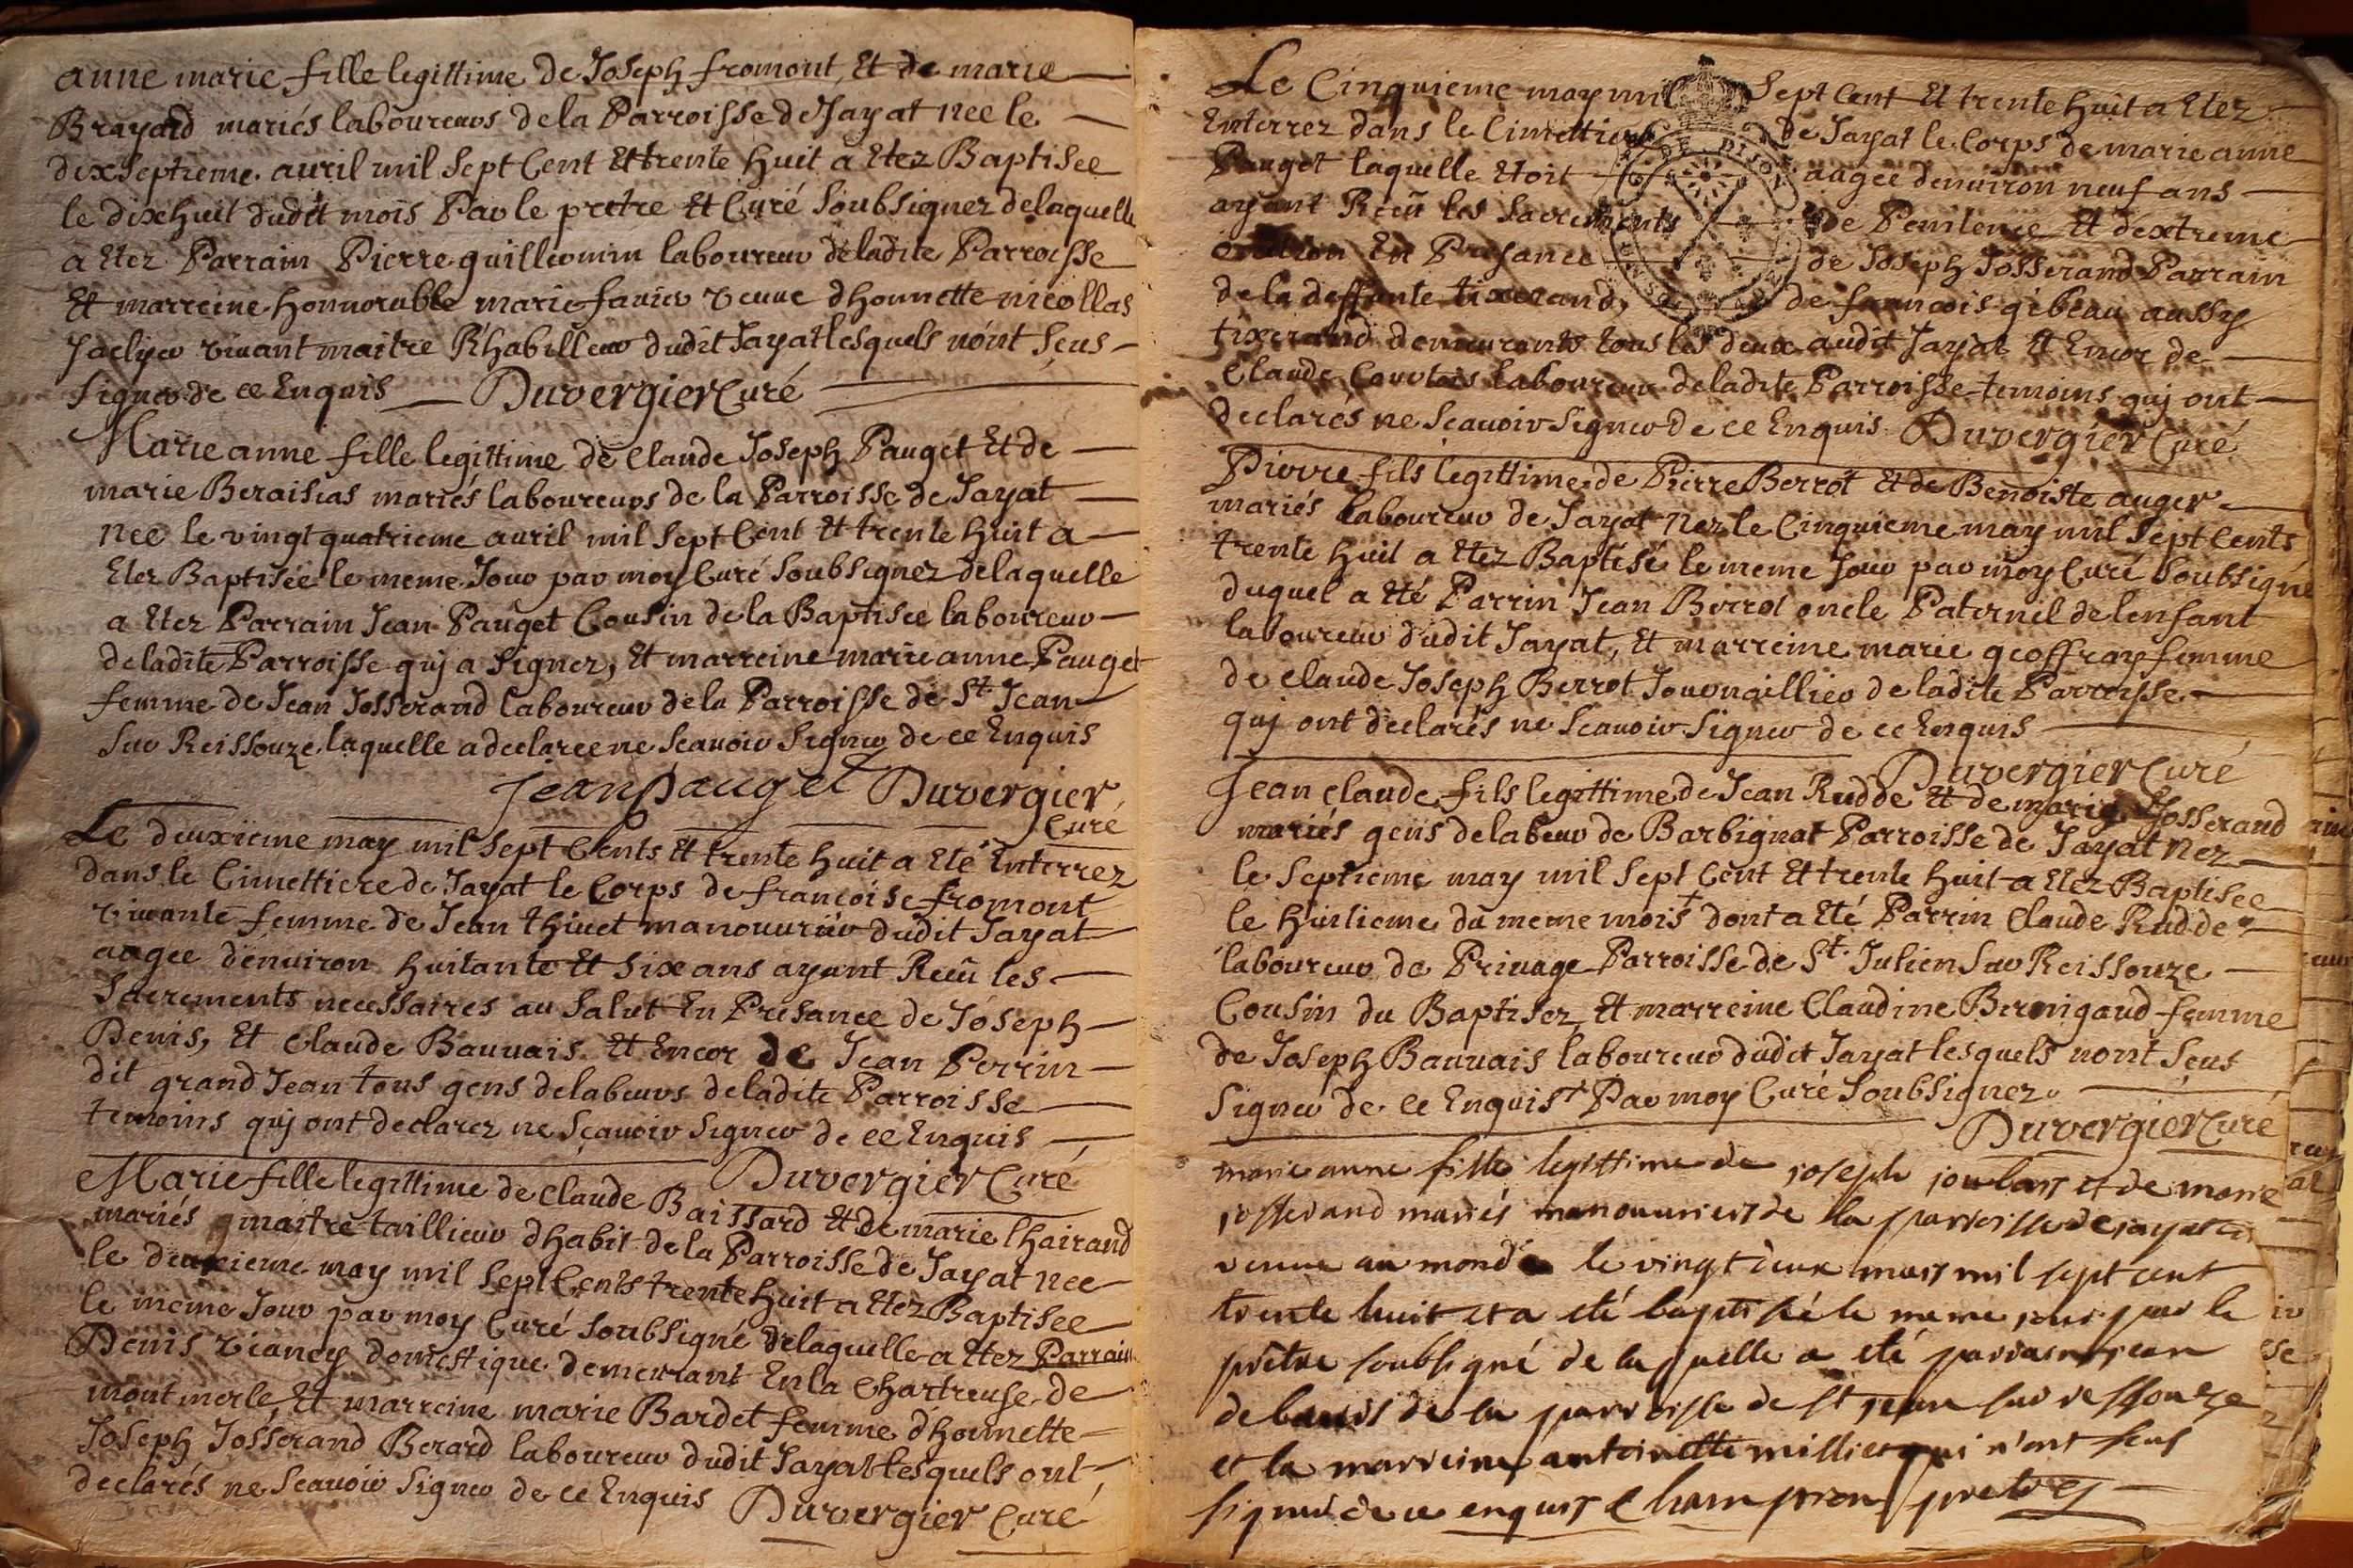 anne marie fille legittime de Joseph fromont, Et de marie
Brayard mariés laboureurs de la Parroisse de Jayat nee le
dixseptieme avril mil Sept Cent Et trente huit a Etez Baptisee
le dixhuit dudit mois Par le pretre Et Curé Soubsignez de laquelle
a Etez Parrain Pierre guilleomin laboureur de ladite Parroisse
Et marreine honnorable marie favier veuve dhonnette nicollas
Joclyer vivant maitre Rhabilleur dudit Jayat lesquels nont Seus
Signer de ce Enquis Duvergier Curé
Marie anne fille legittime de Claude Joseph Pauget Et de
marie Beraisias mariés laboureurs de la Parroisse de Jayat
nee le vingt quatrieme avril mil Sept Cent Et trente huit a
Etez Baptisée le meme Jour par moy Curé Soubsignez de laquelle
a Etez Parrain Jean Pauget Cousin de la Baptisee laboureur
de ladite Parroisse quj a Signez, Et marreine marie anne Pauget
femme de Jean Josserand laboureur de la Parroisse de St Jean
Sur Reissouze laquelle a declaree ne Scavoir Signer de ce Enquis
jean pauget Duvergier
Curé
Le deuxieme may mil Sept Cents Et trente huit a Eté Enterrez
dans le Cimettiere de Jayat le Corps de francoise fromont
vivante femme de Jean thivet manouvrier dudit Jayat
aagee denviron huitante Et Six ans ayant Reçu les
Sacrements necessaires au Salut En Presance de Joseph
Denis, Et Claude Bauvais Et Encor de Jean Perrin
dit grand Jean tous gens de labeurs de ladite Parroisse
temoins quj ont declarez ne Sçavoir Signer de ce Enquis
Duvergier Curé
Marie fille legittime de Claude Baissard Et de marie Chairand
mariés maitre taillieur dhabit de la Parroisse de Jayat nee
le deuxieme may mil Sept Cents trente huit a Etez Baptisee
le meme Jour par moy Curé Soubsigné de laquelle a Etez Parrain
Denis vianey domestique demeurant En la Chartreuse de
montmerle, Et marreine marie Bardet femme dhonnette
Joseph Josserand Berard laboureur dudit Jayat lesquels ont
declarés ne Scavoir Signer de ce Enquis Duvergier Curé
Le Cinquieme may mil Sept Cent Et trente huit a Etez
Enterrez dans le Cimettiere de Jayat le Corps de marie anne
Pauget laquelle Etoit aagee denviron neuf ans
ayant Reçû les Sacrements de Penitence Et dextreme
onction En Presance de Joseph Josserand Parrain
de la deffunte tixerand, de francois gibeau aussy
tixerand demeurants tous les deux audit Jayat Et Encor de
Claude laboureur de ladite Parroisse temoins quj ont
declarés ne Scavoir Signer de ce Enquis Duvergier Curé
Pierre fils legittime de Pierre Berrot Et de Benoiste auger
mariés laboureur de Jayat nez le Cinquieme may mil Sept Cents
trente huit a Etez Baptisé le meme Jour par moy Curé Soubsigné
duquel a Eté Parrin Jean Berrot oncle Paternel de lenfant
laboureur dudit Jayat, Et marreine marie geoffray femme
de Claude Joseph Berrot Journaillier de ladite Parroisse
quj ont declarés ne Scavoir Signer de ce Enquis
Duvergier Curé
Jean Claude fils legittime de Jean Rudde Et de marie Josserand
mariés gens de labeur de Barbignat Parroisse de Jayat nez
le Septieme may mil Sept Cent Et trente huit a Etez Baptisee
le huitieme du meme mois dont a Eté Parrin Claude Rudde
laboureur de Privage Parroisse de St Julien Sur Reissouze
Cousin du Baptisez, Et marreine Claudine Bernigaud femme
de Joseph Bauvais laboureur dudit Jayat lesquels nont Seus
Signer de ce Enquis Par moy Curé Soubsignez
Duvergier Curé
marie anne fille legittime de joseph et de marie
josserand mariés manouvriers de la parroisse de jayat
venue au monde le vingt deux mars mil sept cent
trente huit et a eté baptisée le meme jour par le
prêtre soubsigné de laquelle a eté parrain jean
de la parroisse de st jean sur ressouze
et la marreine antoinette milliet qui n'ont seus
signer de ce enquis Champion pretre